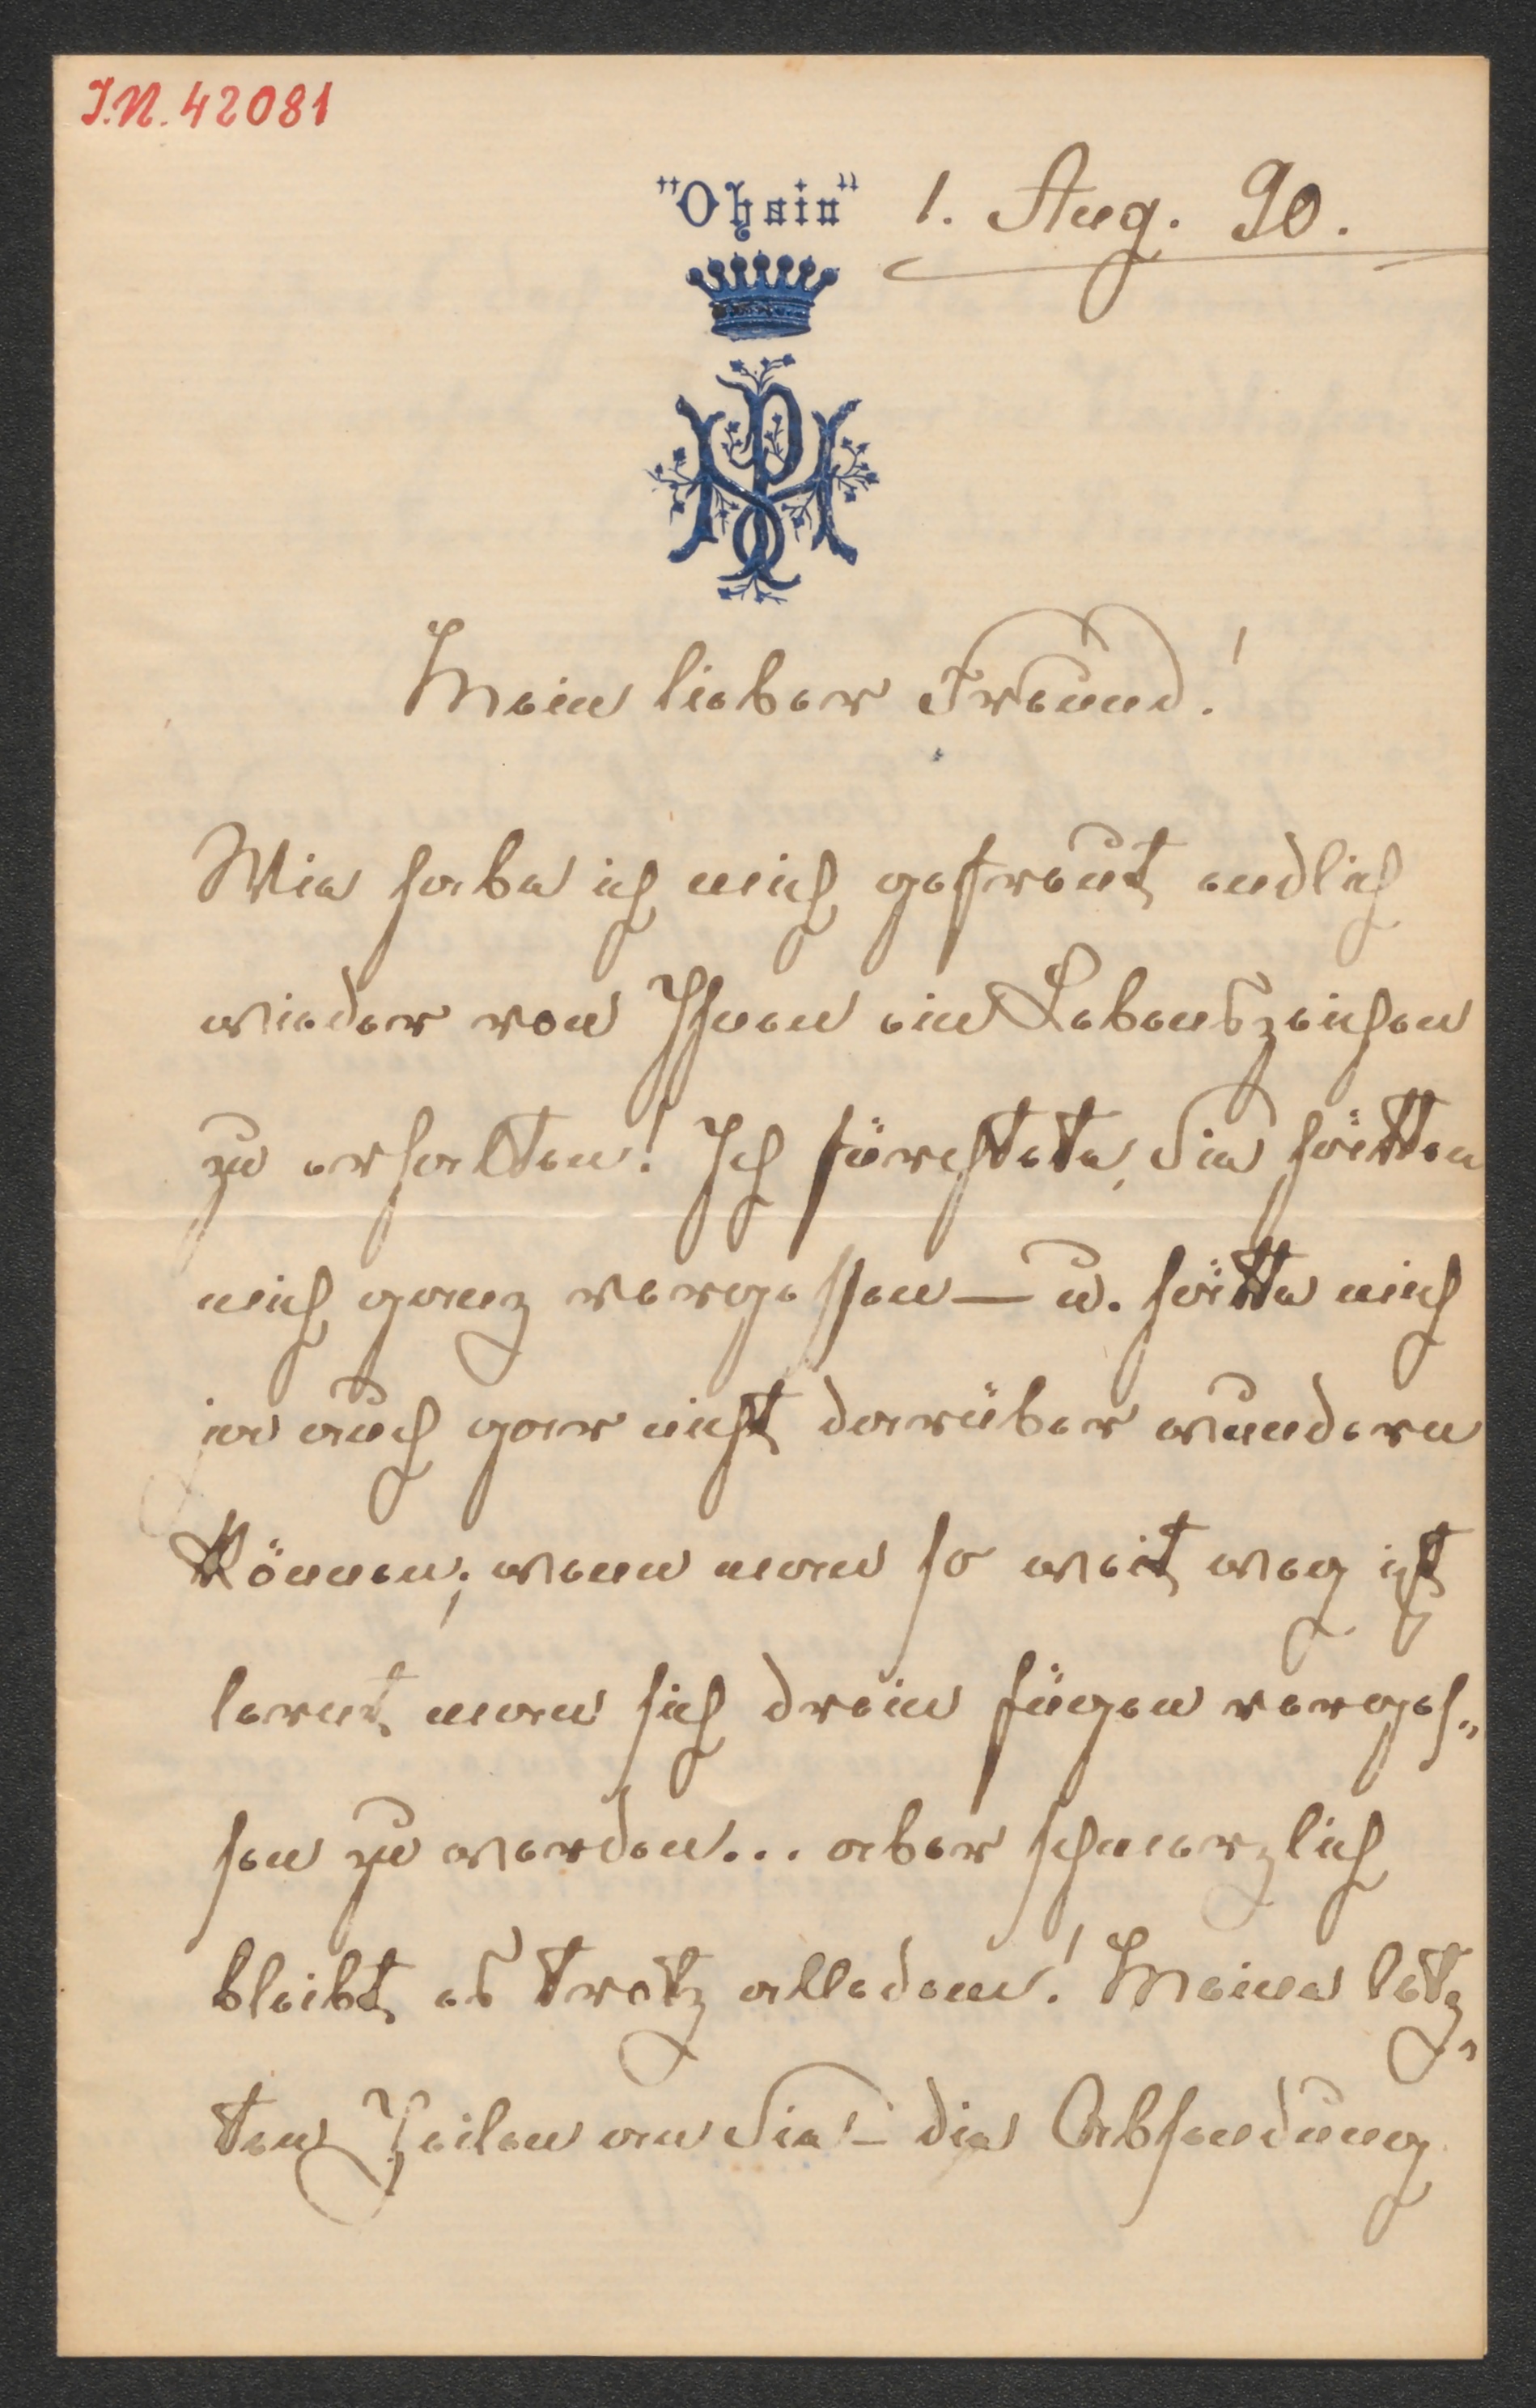 I.N. 42081
"Ohain" 1. Aug. 90.
Mein lieber Freund!
Wie habe ich mich gefreut endlich
wieder von Ihnen ein Lebenszeichen
zu erhalten! Ich fürchtete, Sie hätten
mich ganz vergessen — u. hätte mich
ja auch gar nicht darüber wundern
können; wenn man so weit weg ist
lernt man sich drein fügen verges„
sen zu werden... aber schmerzlich
bleibt es trotz alledem! Meine letz„
ten Zeilen an Sie – die Absendung